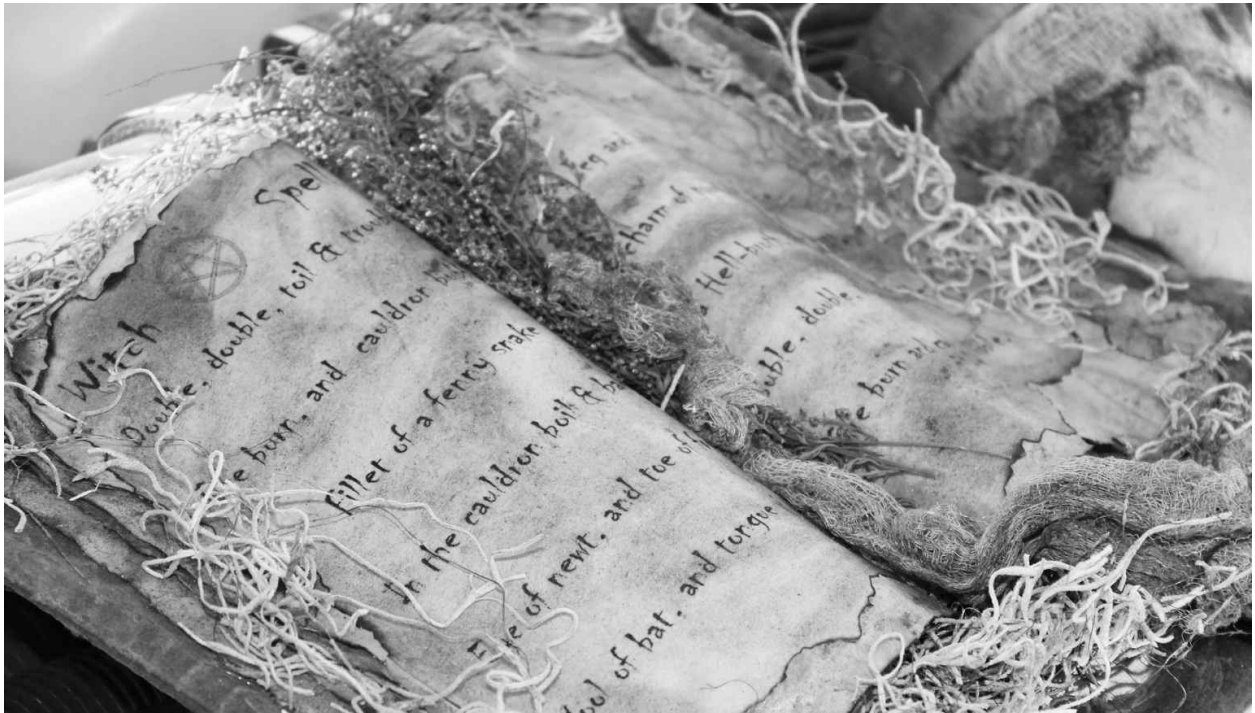 Witch Spell
Double, double, toil &
burn, and cauldron
Fillet of a fenny snake
In the cauldron boil &
Eye of newt, and toe of
of bat, and tongue
charm of
Hell-broth
double,
burn and